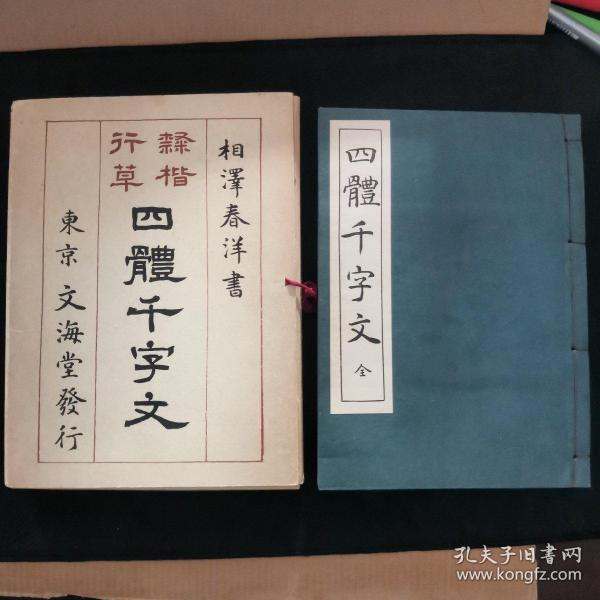 相澤春洋書
隸楷
行草
四體千字文
東京 文海堂發行
四體千字文 全
孔夫子旧書网
www.kongfz.com